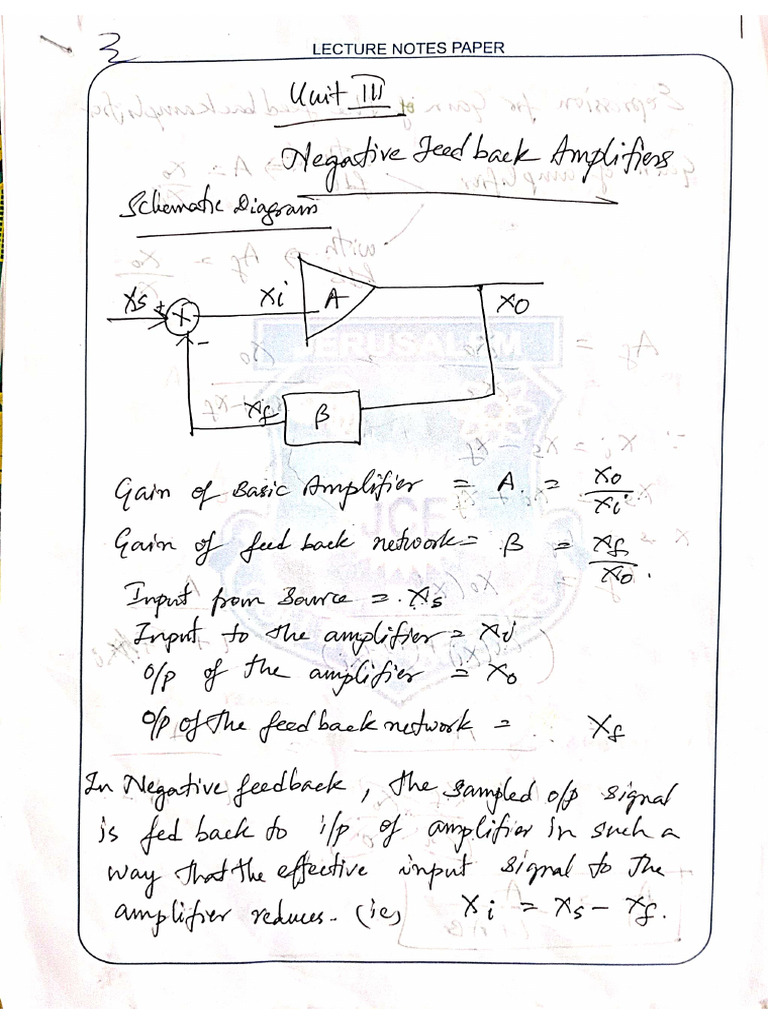 3
LECTURE NOTES PAPER
Unit III
Negative Feedback Amplifiers
Schematic Diagram
Xs + Xi A Xo
-
Xf β
Gain of Basic Amplifier = A = Xo/Xi
Gain of feed back network = β = Xf/Xo.
Input from Source = Xs
Input to the amplifier = Xi
O/p of the amplifier = Xo
O/p of the feedback network = Xf
In Negative feedback, the sampled o/p signal
is fed back to i/p of amplifier in such a
way that the effective input signal to the
amplifier reduces. (ie) Xi = Xs - Xf.
JERUSALEM
JCE